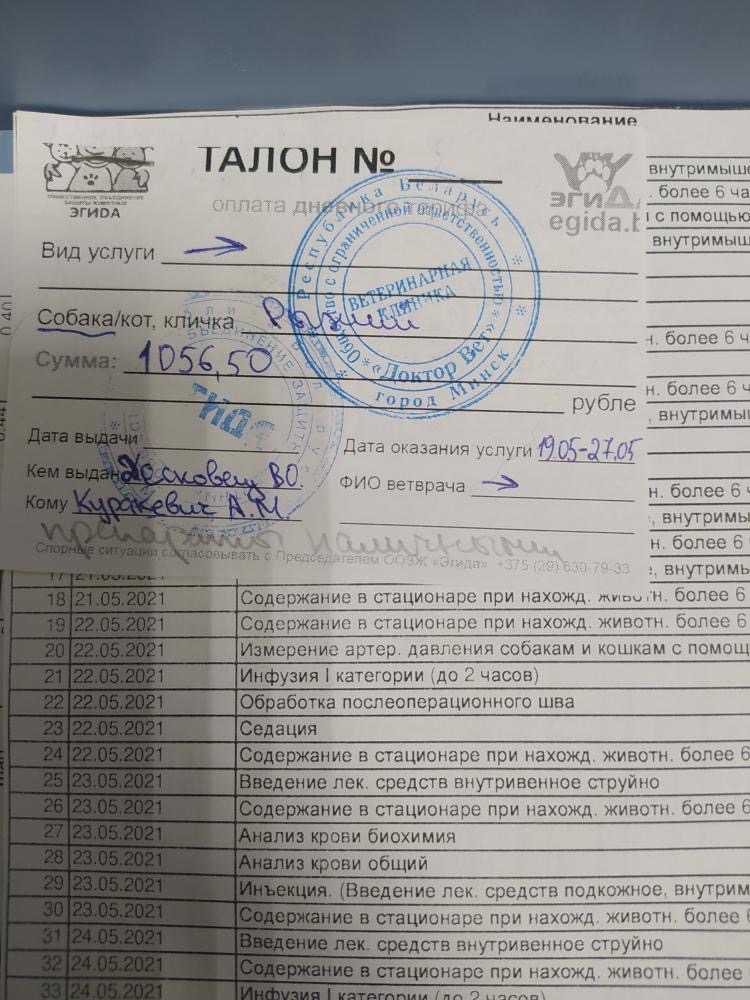 Наименование
ОБЩЕСТВЕННОЕ ОБЪЕДИНЕНИЕ
ЗАЩИТЫ ЖИВОТНЫХ
ЭГИДА
ТАЛОН №
оплата дневного тарифа
ЭГИДА
egida.b
Вид услуги
Собака/кот, кличка Рыжий
Сумма: 1056,50
рубле
Дата выдачи
Дата оказания услуги 19.05-27.05
Кем выдан Хесковец В.О.
ФИО ветврача
Кому Куракевич А.М.
препараты наличными
Спорные ситуации согласовывать с Председателем ООЗЖ «Эгида» +375 (29) 630-79-33
Республика Беларусь
Общество с ограниченной ответственностью
ВЕТЕРИНАРНАЯ
КЛИНИКА
«Доктор Вет»
город Минск
внутримыше
. более 6 ча
и с помощью
внутримыш
н. более 6 ч
н. более 6 ч
, внутримы
н. более 6 ч
, внутримы
н. более 6
, внутримь
17 21.05.2021
18 21.05.2021 Содержание в стационаре при нахожд. животн. более 6
19 22.05.2021 Содержание в стационаре при нахожд. животн. более 6
20 22.05.2021 Измерение артер. давления собакам и кошкам с помощ
21 22.05.2021 Инфузия I категории (до 2 часов)
22 22.05.2021 Обработка послеоперационного шва
23 22.05.2021 Седация
24 22.05.2021 Содержание в стационаре при нахожд. животн. более 6
25 23.05.2021 Введение лек. средств внутривенное струйно
26 23.05.2021 Содержание в стационаре при нахожд. животн. более 6
27 23.05.2021 Анализ крови биохимия
28 23.05.2021 Анализ крови общий
29 23.05.2021 Инъекция. (Введение лек. средств подкожное, внутрим
30 23.05.2021 Содержание в стационаре при нахожд. животн. более 6
31 24.05.2021 Введение лек. средств внутривенное струйно
32 24.05.2021 Содержание в стационаре при нахожд. животн. более 6
33 24.05.2021 Инфузия I категории (до 2 часов)